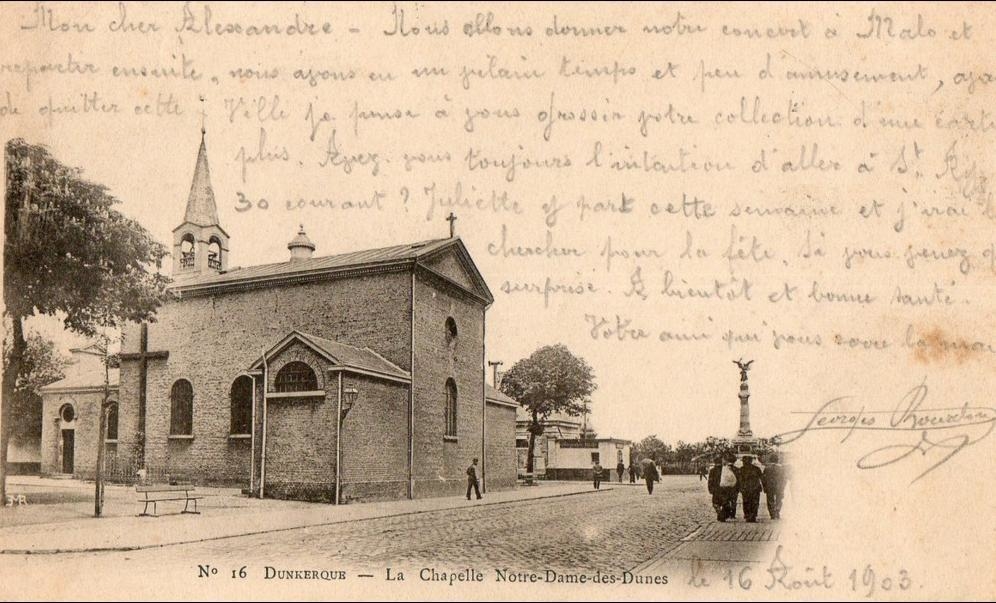 Mon cher Alexandre - Nous allons donner notre concert à Malo et
repartir ensuite, nous avons eu un vilain temps et peu d'amusement,
de quitter cette Ville je pense à vous grossir votre collection d'une carte
plus. Avez vous toujours l'intention d'aller à St
30 courant ? Juliette y part cette semaine et j'irai
chercher pour la fête. Si vous venez
surprise. A bientôt et bonne santé.
Votre ami qui vous serre la main
Georges
J-R
No 16 DUNKERQUE — La Chapelle Notre-Dame-des-Dunes
le 16 Août 1903.